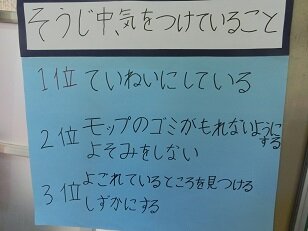 そうじ中、気をつけていること
1位 ていねいにしている
2位 モップのゴミがもれないようにする
よそみをしない
3位 よごれているところを見つける
しずかにする